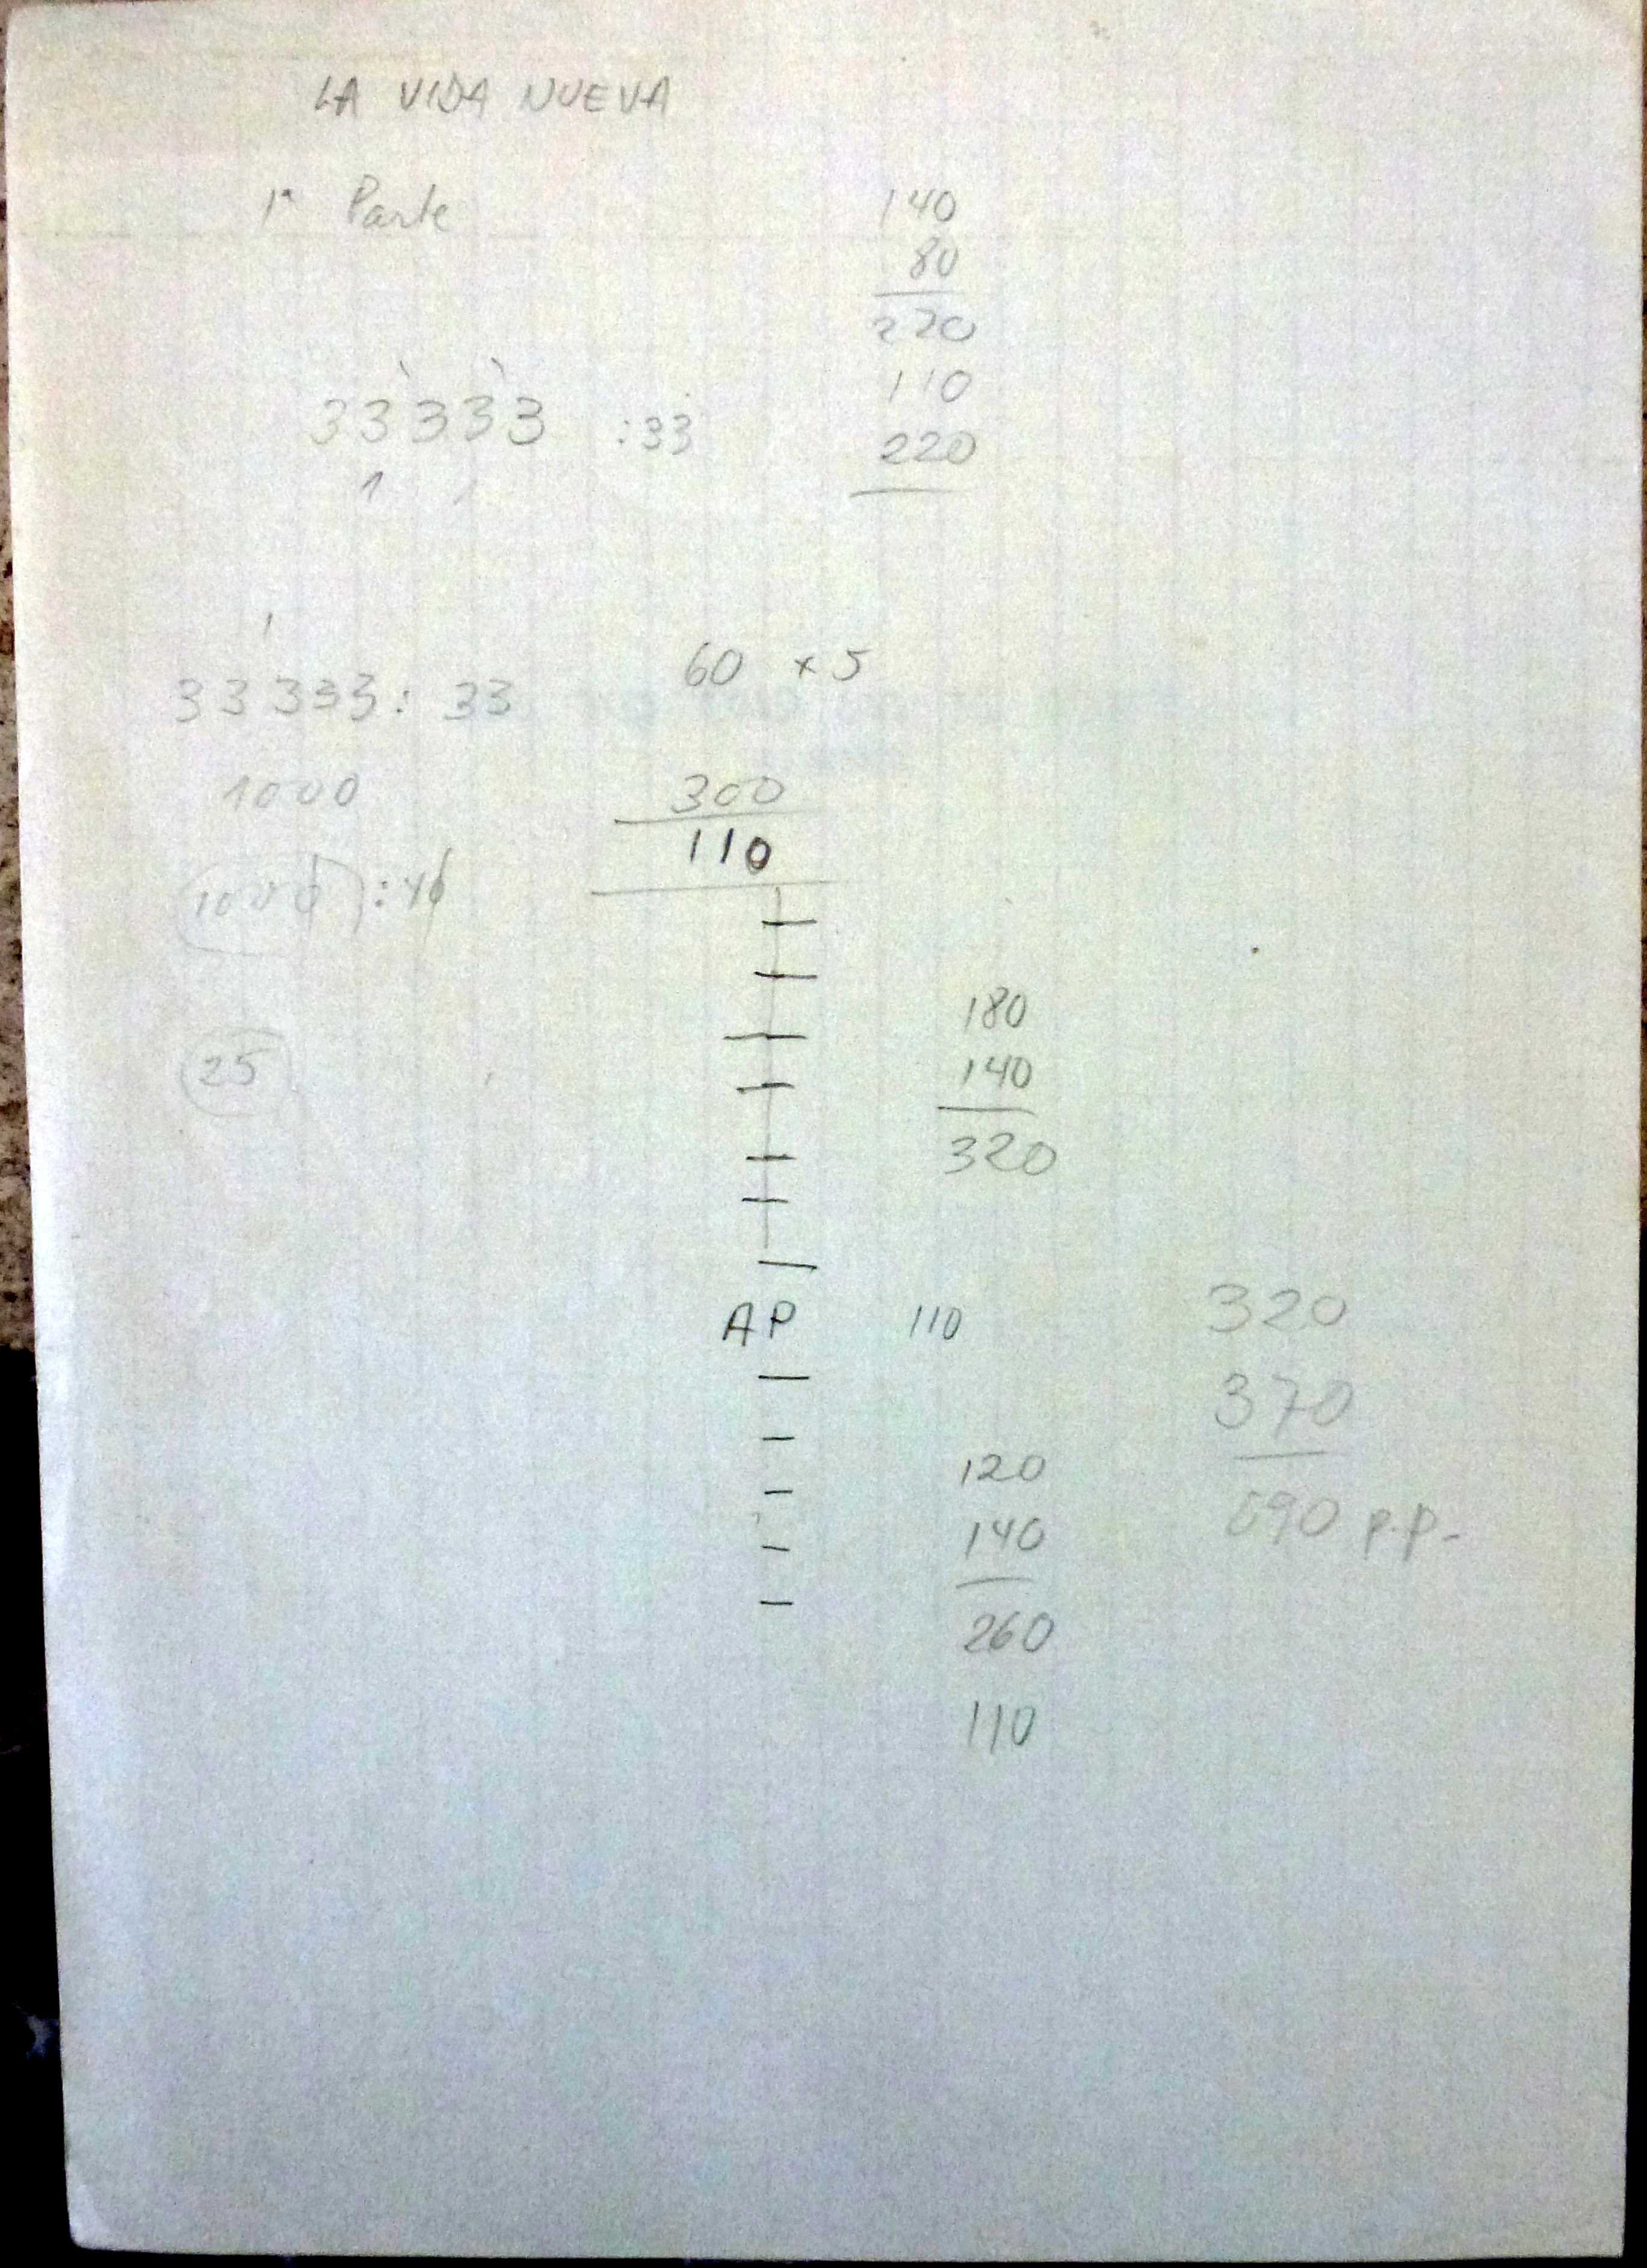 LA VIDA NUEVA
1ª Parte
140
80
220
110
220
33333 :33
1
60 x 5
33333: 33
1000
300
110
1000 :40
25
180
140
320
AP 110
320
370
690 p.p.
120
140
260
110